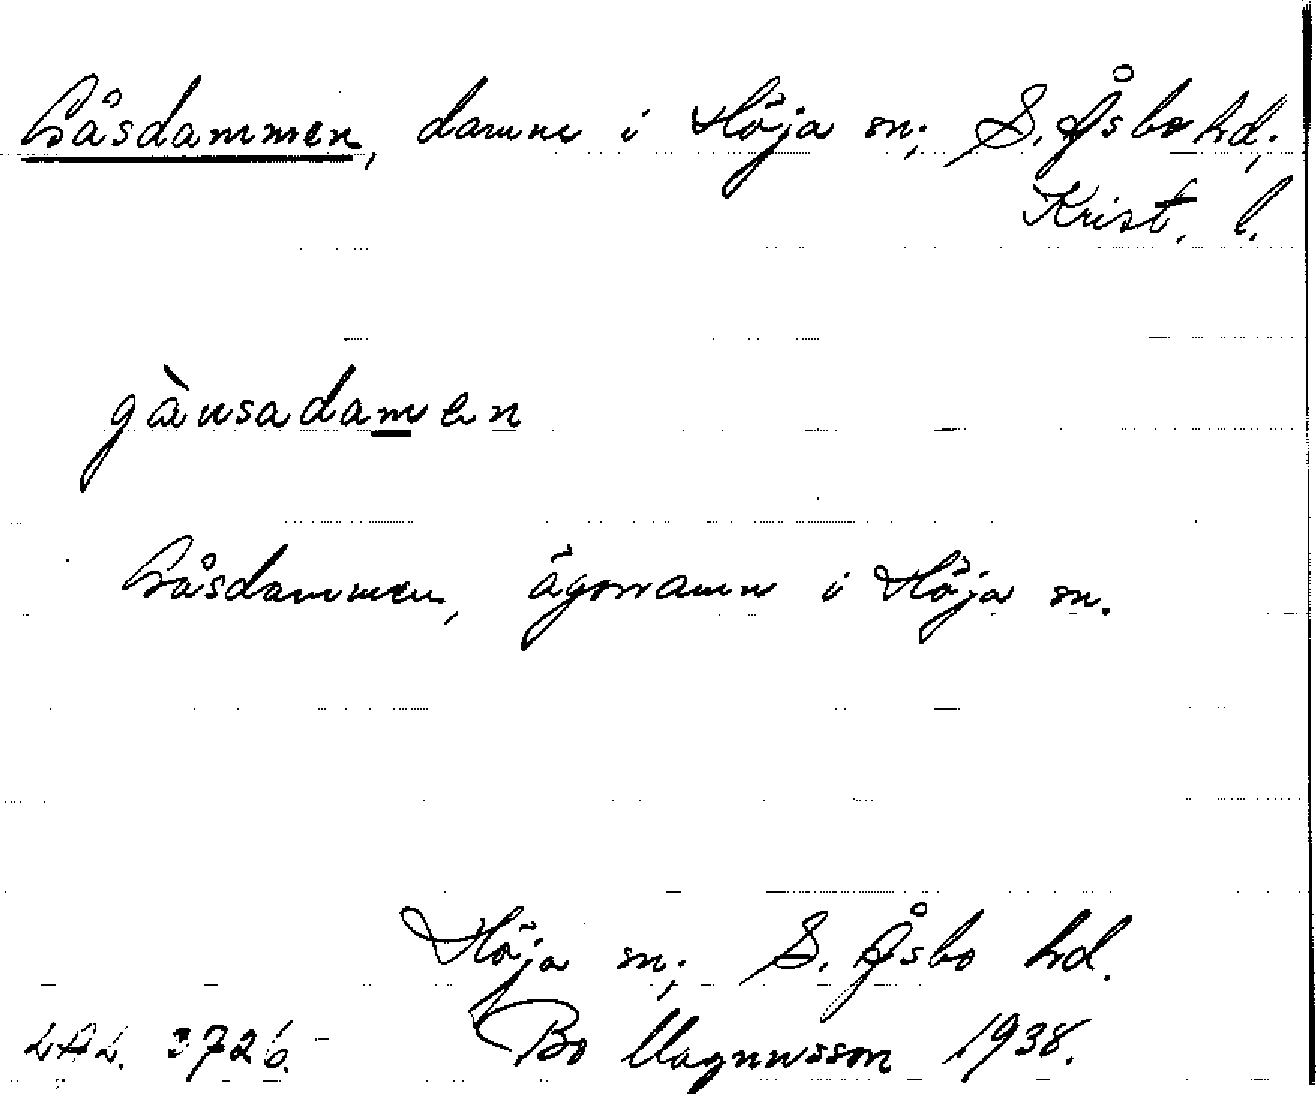 Gåsdammen, damm i Höja sn; S. Åsbo hd;
Krist. l.
gànsadamen
Gåsdammen, ägonamn i Höja sn.
Höja sn; S. Åsbo hd.
LAL. 3726. Bo Magnusson 1938.